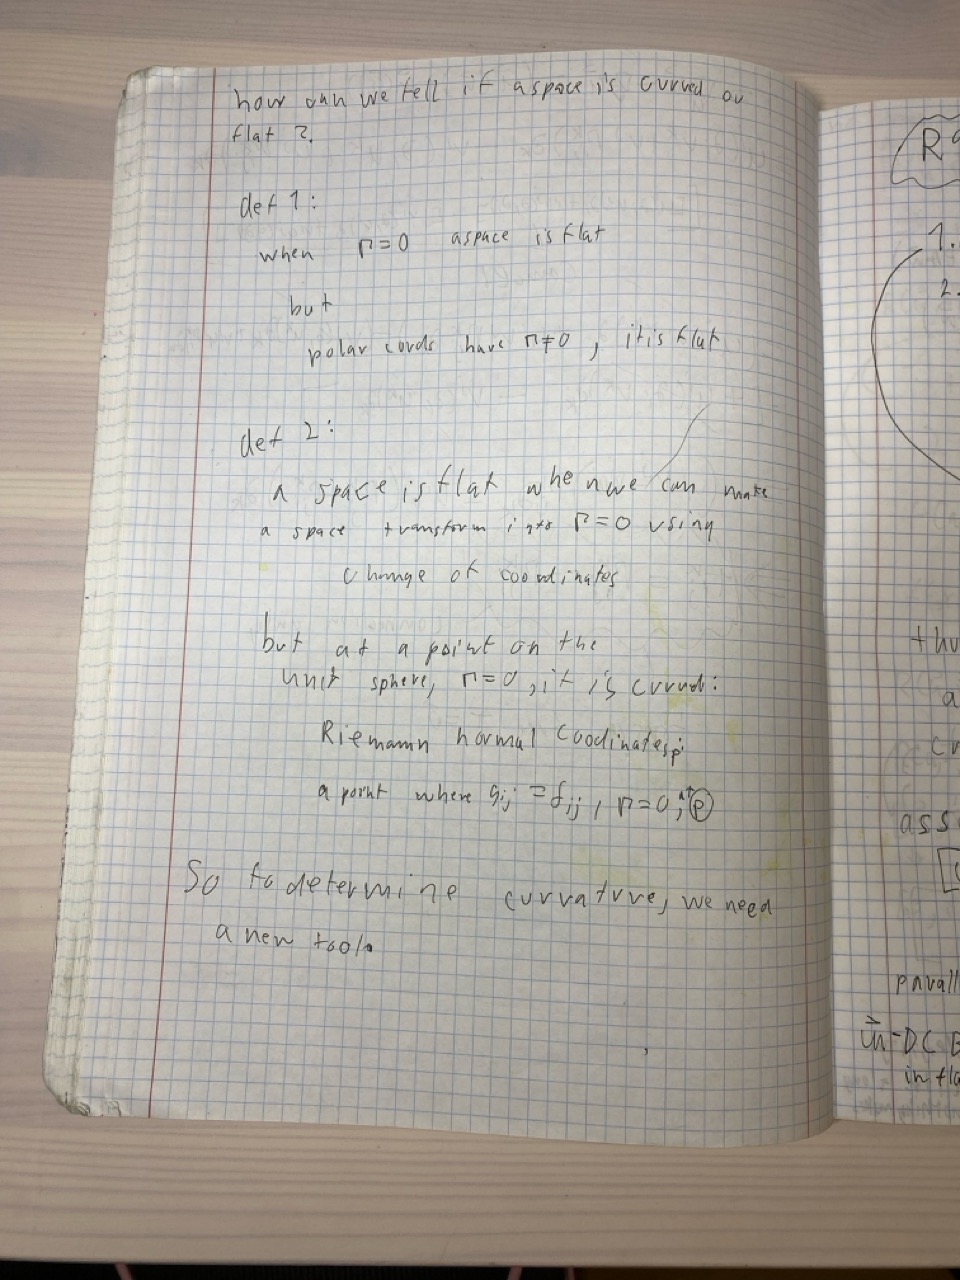 how can we tell if a space is curved or
flat ?
def 1:
when Γ=0 a space is flat
but
polar cords have Γ≠0 , it is flat
def 2:
a space is flat when we can make
a space transform into Γ=0 using
change of coordinates
but at a point on the
unit sphere, Γ=0, it is curved:
Riemann normal coodinates:
a point where gij = δij, Γ=0, at p
So to determine curvature, we need
a new tool.
R
1.
2.
a
ass
parall
in fla